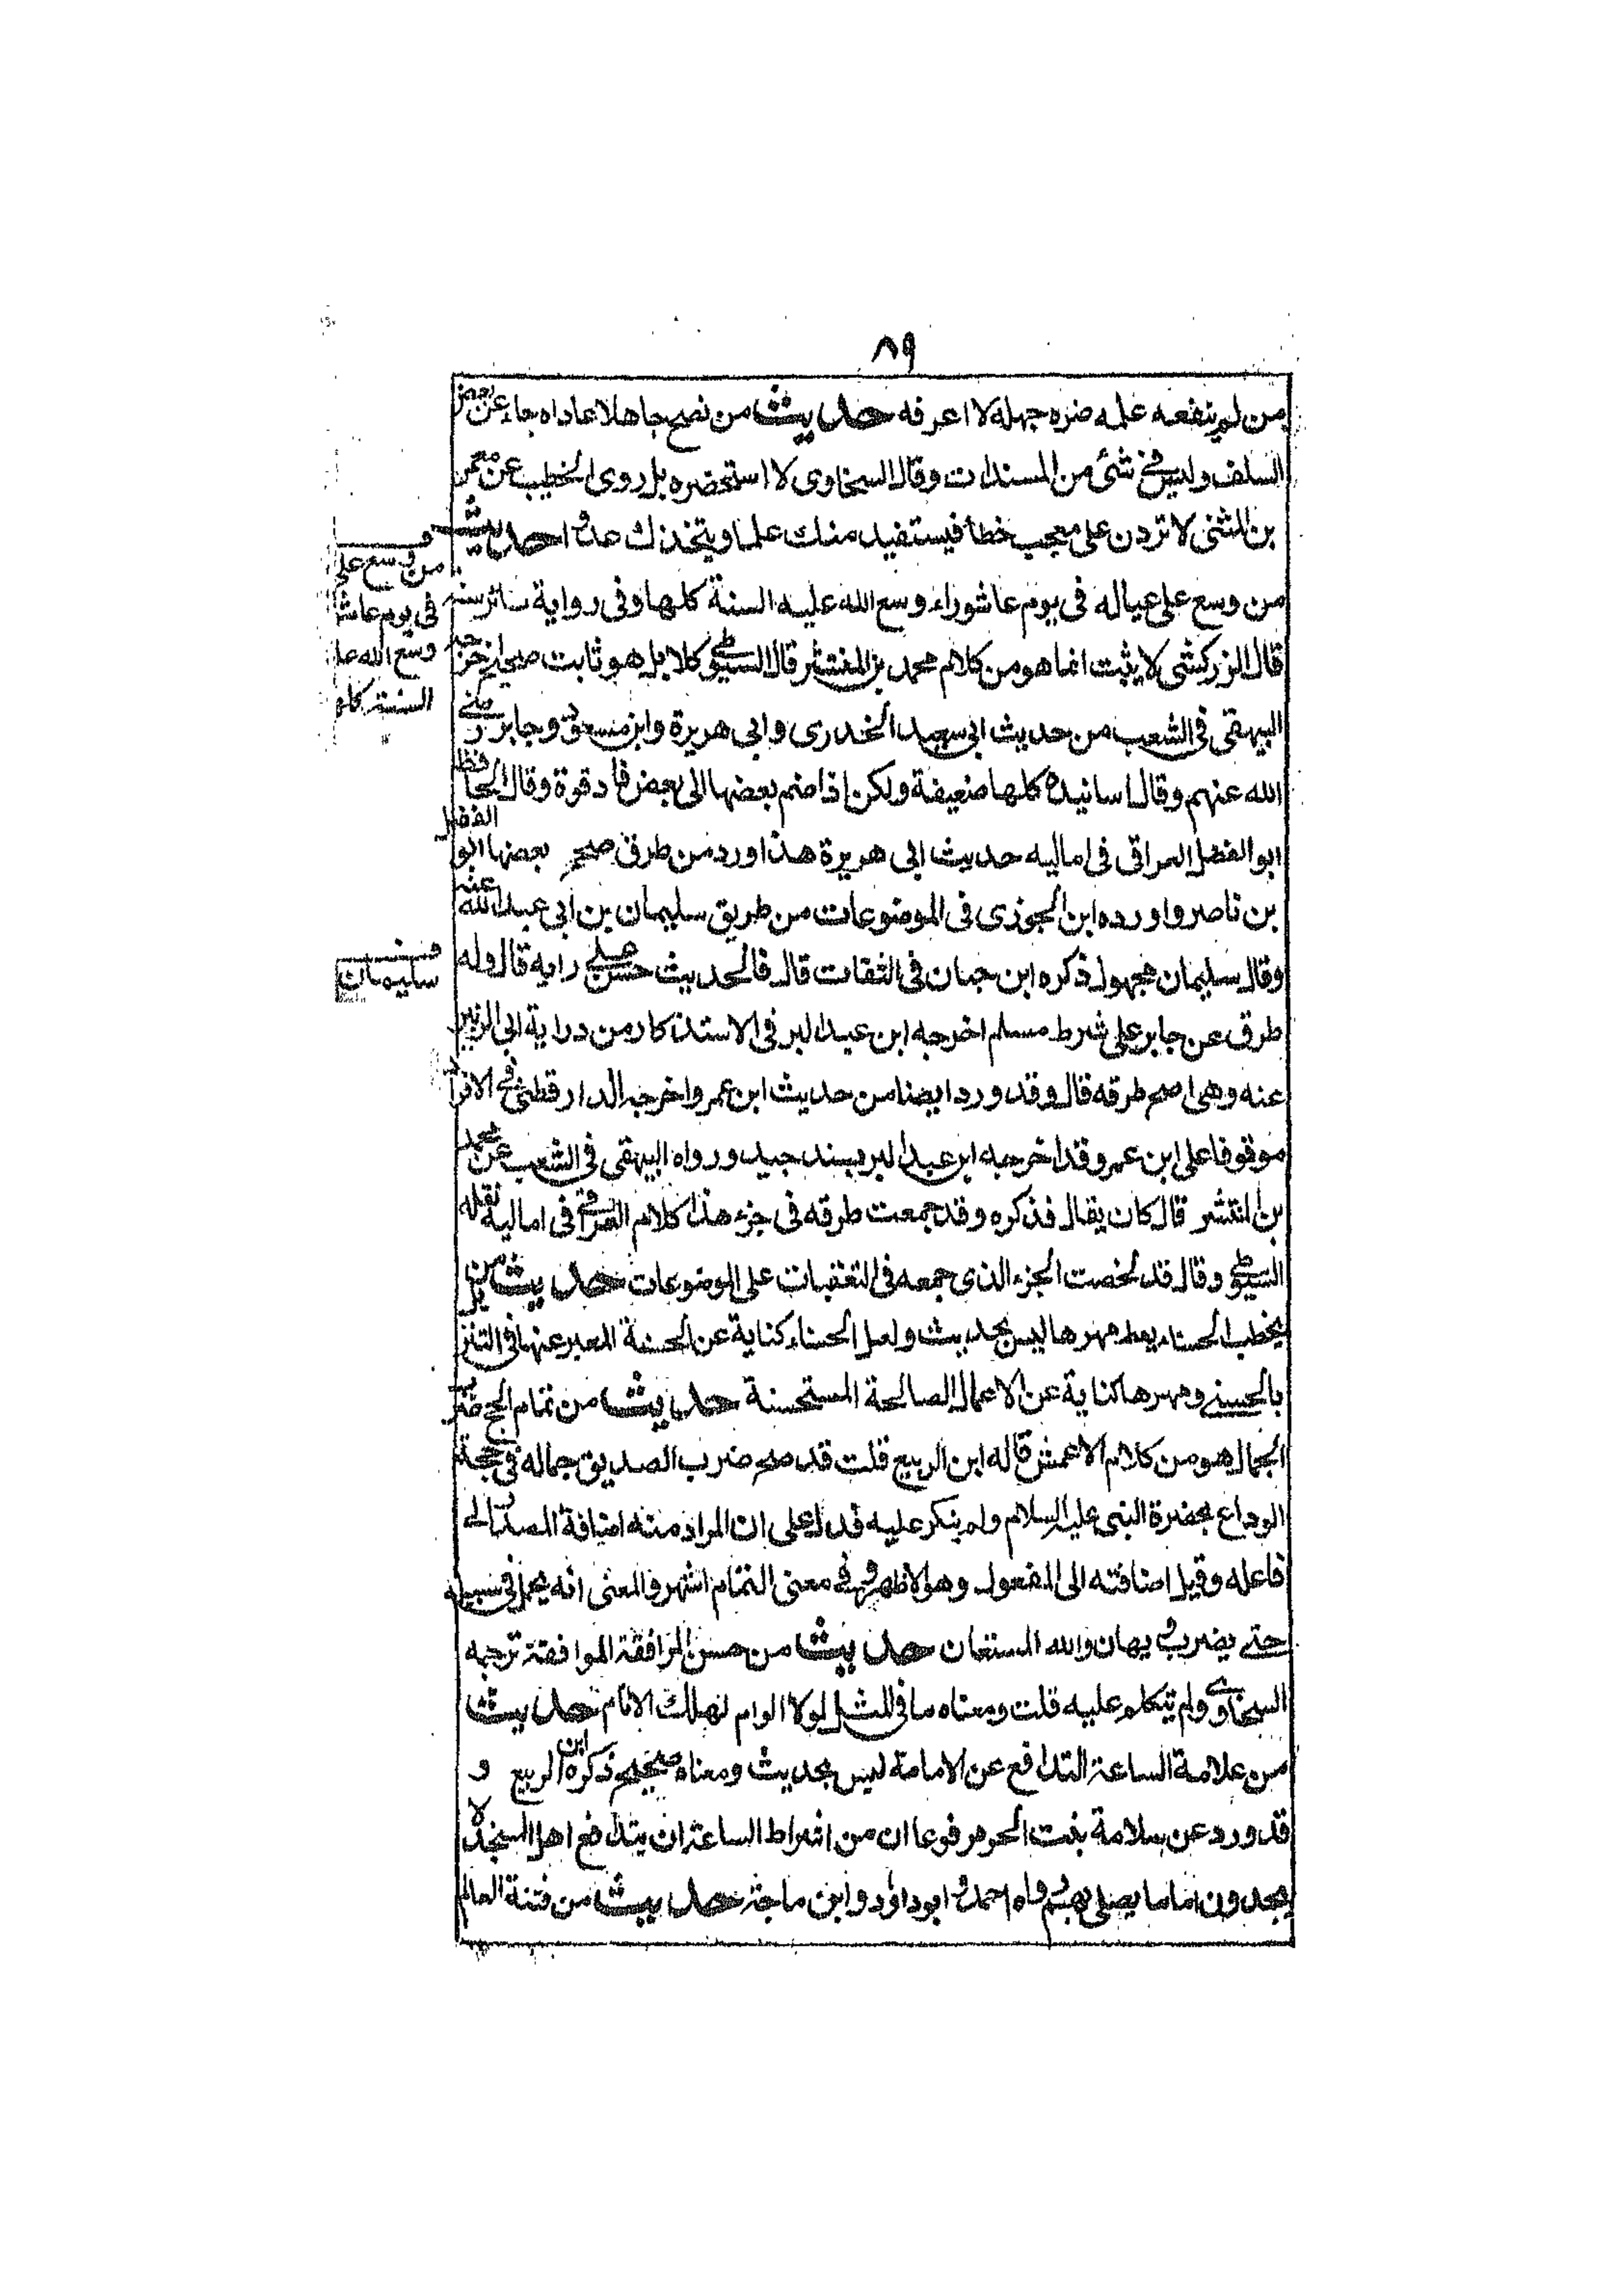 ٨٩
من لم ينفعه علمه ضره جهله لا اعرفه حديث من نصح جاهلا عاداه جاء عن بعض
السلف وليس في شئ من المسندات وقال السخاوى لا استحضره بل روى الخطيب عن معمر
بن المثنى لا تردن على معجب خطأ فيستفيد منك علما ويتخذك عدوا حديث
من وسع على عياله فى يوم عاشوراء وسع الله عليه السنة كلها وفى رواية سائر سنته
قال الزركشى لا يثبت انما هو من كلام محمد بن المنتشر قال السيوطي كلا بل هو ثابت صحيح اخرجه
البيهقى فى الشعب من حديث ابى سعيد الخدرى وابى هريرة وابن مسعود وجابر رضي
الله عنهم وقال اسانيده كلها ضعيفة ولكن اذا ضم بعضها الى بعض فاد قوة وقال الحافظ
ابو الفضل العراقى فى اماليه حديث ابى هريرة هذا ورد من طرق صحح بعضها ابو الفضل
بن ناصر واورده ابن الجوزى فى الموضوعات من طريق سليمان بن ابى عبد الله عنه
وقال سليمان مجهول ذكره ابن حبان فى الثقات قال فالحديث حسن على رايه قال وله
طرق عن جابر على شرط مسلم اخرجه ابن عبد البر فى الاستذكار من دراية ابى الزبير
عنه وهى اصح طرقه قال وقد ورد ايضا من حديث ابن عمر واخرجه الدارقطنى في الافراد
موقوفا على ابن عمر وقد اخرجه ابن عبد البر بسند جيد ورواه البيهقى فى الشعب عن محمد
بن المنتشر قال كان يقال فذكره وقد جمعت طرقه فى جزء هذا كلام العراقي فى اماليه نقله
السيوطي وقال قد لخصت الجزء الذى جمعه فى التعقبات على الموضوعات حديث من
يخطب الحسناء يعط مهرها ليس بحديث ولعل الحسناء كناية عن الحسنة المعبر عنها فى التنزيل
بالحسنى ومهرها كناية عن الاعمال الصالحة المستحسنة حديث من تمام الحج ضرب
الجمال هو من كلام الاعمش قاله ابن الربيع قلت قد صح ضرب الصديق جماله في حجة
الوداع بحضرة النبى عليه السلام ولم ينكر عليه فدل على ان المراد منه اضافة المصدر الى
فاعله وقيل اضافته الى المفعول وهو الاظهر وفى معنى التمام اشهر والمعنى انه يحمل فى سبيله
حتى يضرب ويهان والله المستعان حديث من حسن المرافقة الموافقة ترجمه
السخاوي ولم يتكلم عليه قلت ومعناه ما فى المثل لولا الوام لهلك الانام حديث
من علامة الساعة التدافع عن الامامة ليس بحديث ومعناه صحيح ذكره ابن الربيع و
قد ورد عن سلامة بنت الحر مرفوعا ان من اشراط الساعة ان يتدافع اهل المسجد لا
يجدون اماما يصلى بهم رواه احمد و ابو داؤد و ابن ماجة حديث من فتنة العالم
من وسع على
فى يوم عاشا
وسع الله عل
السنة كلها
سليمان